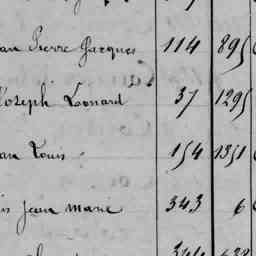 an Pierre Jacques 114 895
Joseph Leonard 37 1295
an Louis 154 1351
is Jean Marie 343 6
344 638